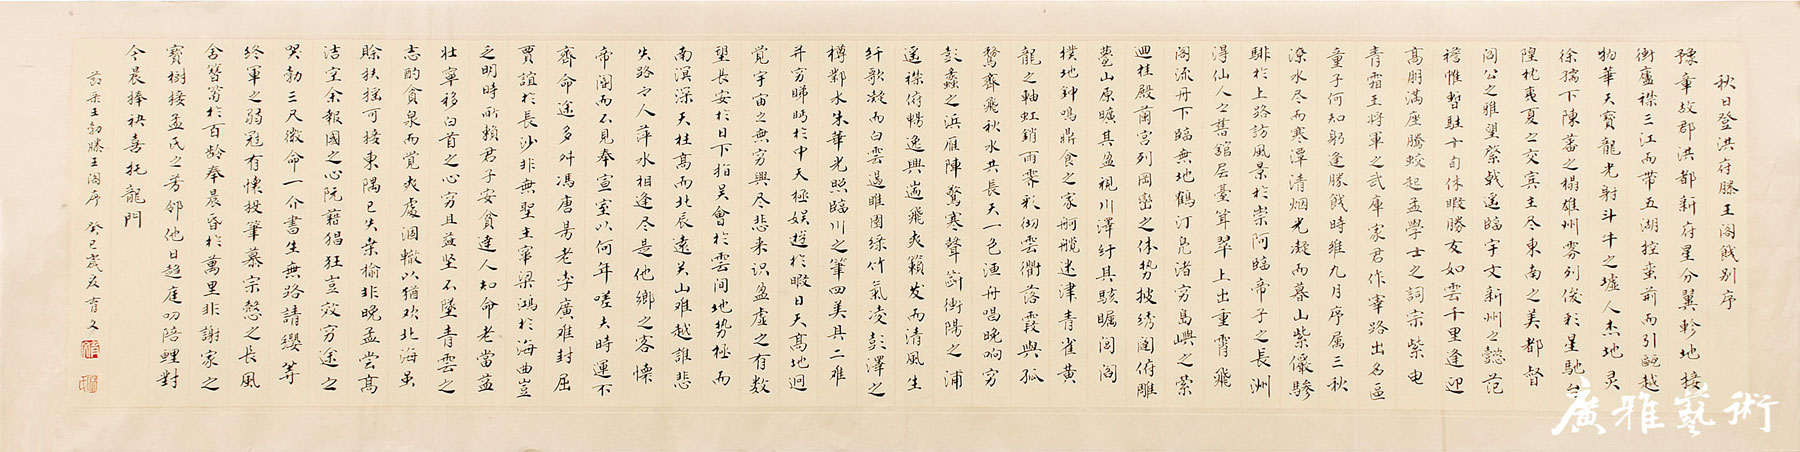 秋日登洪府滕王閣餞別序
豫章故郡洪都新府星分翼軫地接
衡廬襟三江而帶五湖控蠻荊而引甌越
物華天寶龍光射斗牛之墟人杰地灵
徐孺下陳蕃之榻雄州雾列俊彩星馳台
隍枕夷夏之交賓主尽東南之美都督
閻公之雅望棨戟遙臨宇文新州之懿范
襜惟暫駐十旬休暇勝友如雲千里逢迎
高朋滿座騰蛟起孟學士之詞宗紫电
青霜王将軍之武庫家君作宰路出名區
童子何知躬逢勝餞時維九月序属三秋
潦水尽而寒潭清烟光凝而暮山紫儼驂
騑於上路訪風景於崇阿臨帝子之長洲
得仙人之舊舘层臺耸翠上出重霄飛
阁流丹下臨無地鶴汀凫渚穷島嶼之萦
迴桂殿蘭宮列岡巒之体势披绣闥俯雕
甍山原曠其盈視川澤纡其駭矚闾阎
撲地鐘鳴鼎食之家舸艦迷津青雀黄
龍之軸虹銷雨霽彩彻雲衢落霞與孤
鶩齊飛秋水共長天一色渔舟唱晚响穷
彭蠡之浜雁陣驚寒聲斷衡陽之浦
遥襟俯暢逸興遄飛爽籟发而清風生
纤歌凝而白雲遏睢園绿竹氣凌彭澤之
樽鄴水朱華光照臨川之筆四美具二难
并穷睇眄於中天極娱遊於暇日天高地迥
覺宇宙之無穷興尽悲来识盈虚之有数
望長安於日下指吴會於雲间地势极而
南溟深天柱高而北辰遠关山难越誰悲
失路之人萍水相逢尽是他鄉之客懷
帝閽而不見奉宣室以何年嗟夫時運不
齊命途多舛馮唐易老李廣难封屈
賈誼於長沙非無聖主竄梁鴻於海曲豈
乏明時所賴君子安貧達人知命老當益
壮寧移白首之心穷且益坚不墜青雲之
志酌貪泉而覺爽處涸辙以猶欢北海虽
賒扶搖可接東隅已失桑榆非晚孟尝高
洁空余報國之心阮藉猖狂豈效穷途之
哭勃三尺微命一介書生無路請缨等
终軍之弱冠有懷投筆慕宗慤之長風
舍簪笏於百龄奉晨昏於萬里非謝家之
寶樹接孟氏之芳邻他日趋庭叨陪鯉對
今晨捧袂喜托龍門
节录王勃滕王阁序 癸巳歲友育文
廣雅藝術